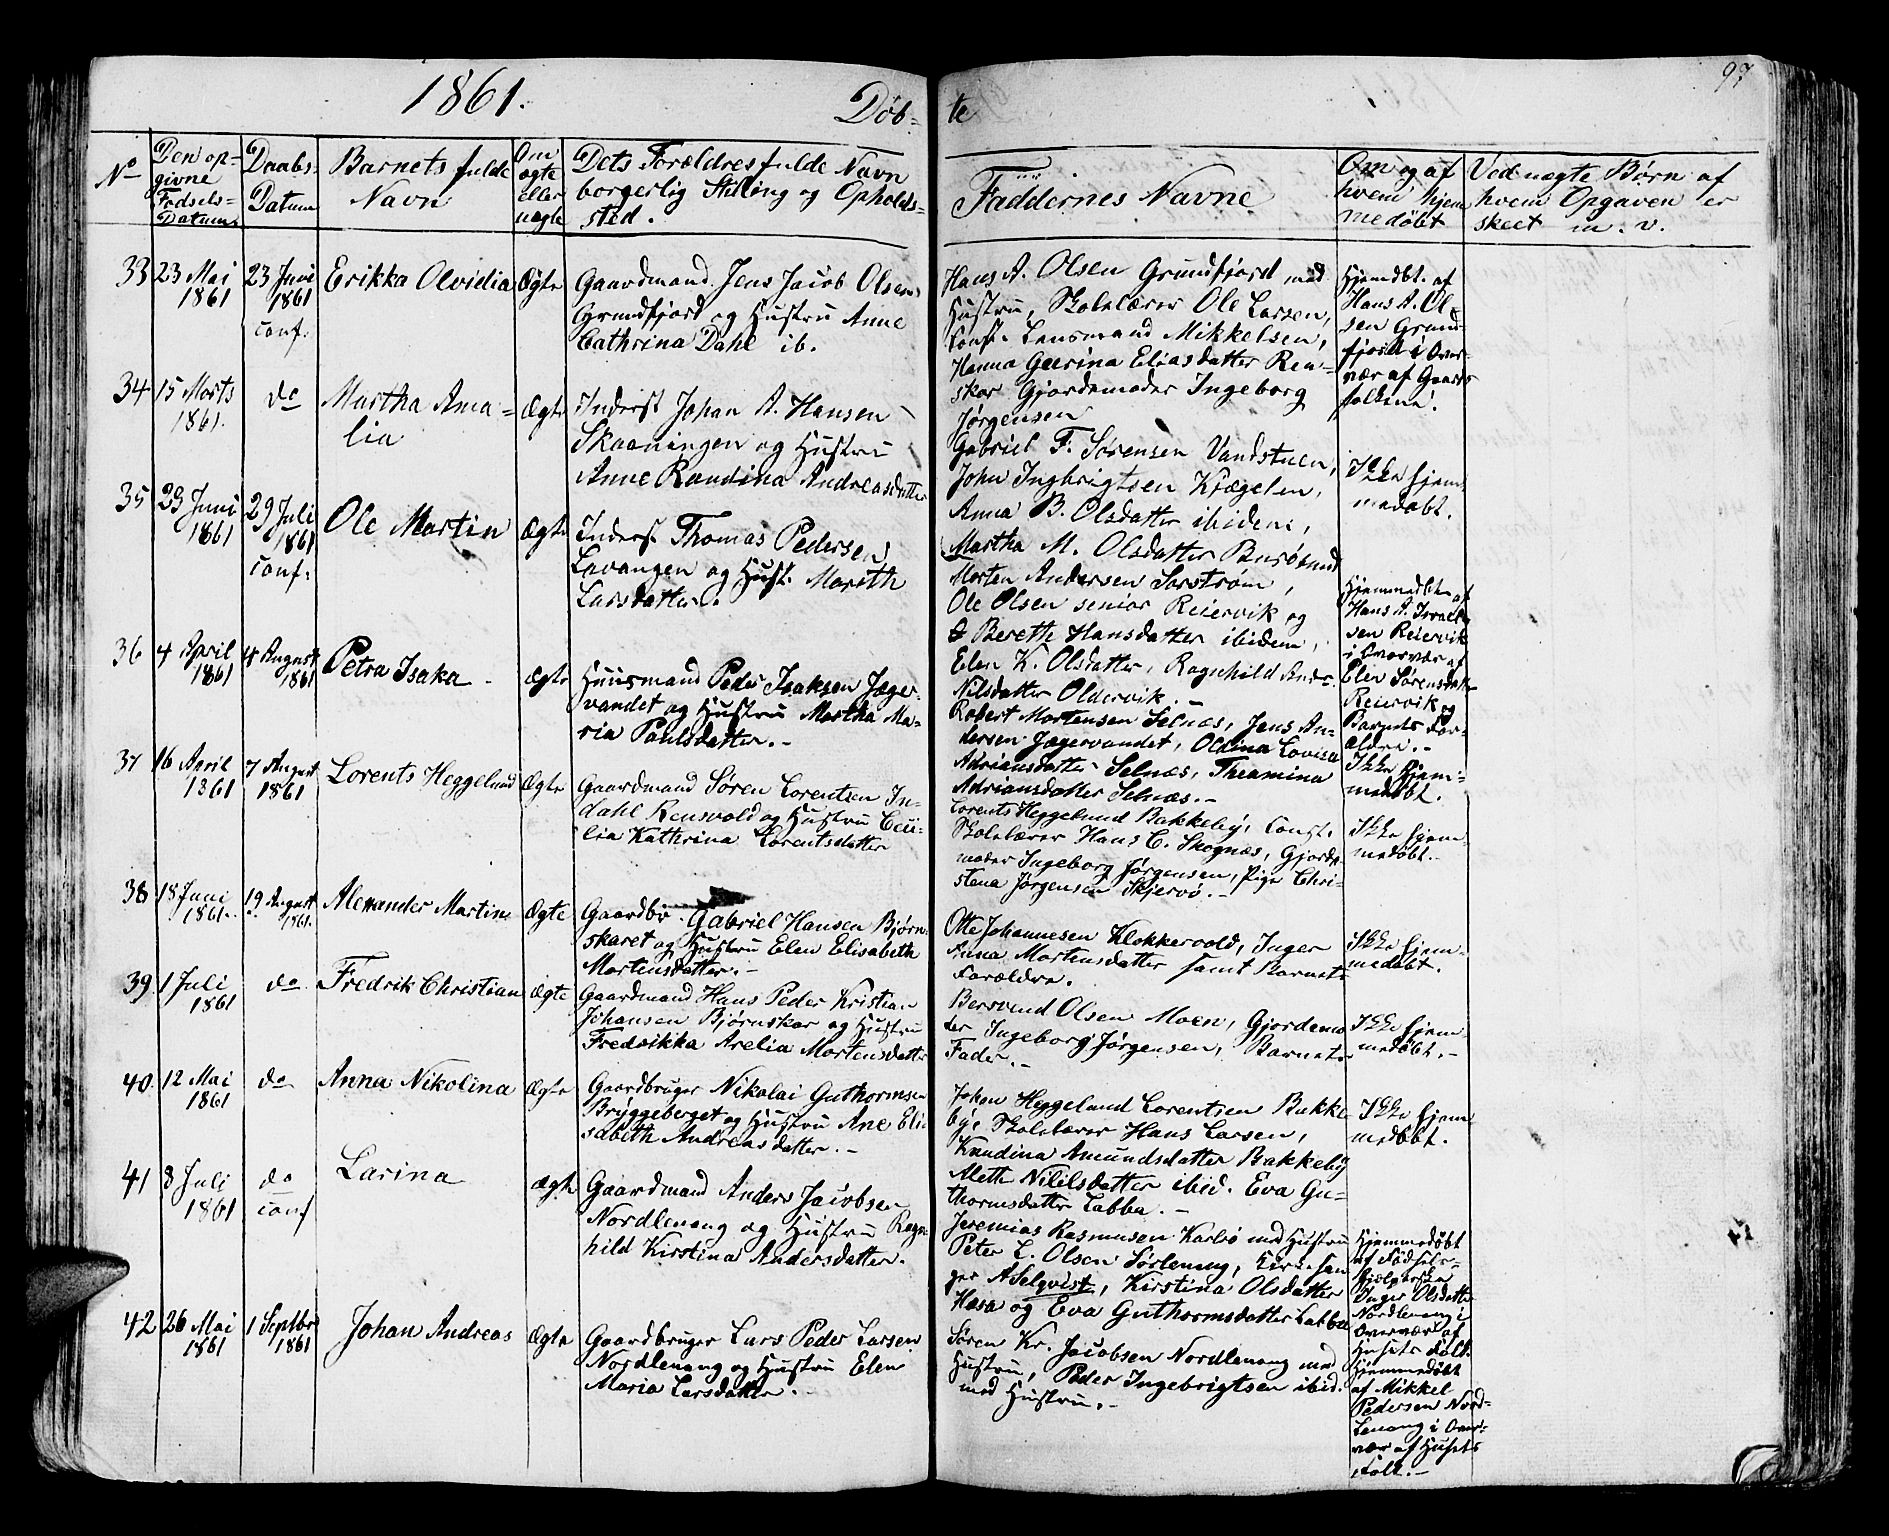 1861.
Döb-
te
97
No
Den op-
givne
Fødsels-
Datum.
Daabs-
Datum
Barnets fulde
Navn
Om
ægte
eller
uægte
Dets Forældres fulde Navn
borgerlig Stilling og Opholds-
sted.
Faddernes Navne
Om og af
hvem hjem
medøbt
Ved uægte Børn af
hvem Opgaven er
skeet m. v.
33 23 Mai
1861
23 Juni
1861
conf.
Erikka Olvidia
Ægte
Gaardmand Jens Jacob Olsen
Grundfjord og Hustru Anne
Cathrina Dahl ib.
Hans A. Olsen Grundfjord med
Hustru, Skolelærer Ole Larsen,
Const. Lensmand Mikkelsen,
Hanna Geerina Eliasdatter Ren-
skar Gjordemoder Ingeborg
Jørgensen
Hjemdbt. af
Hans A. Ol-
sen Grund-
fjord i Over-
vær af Gaards
folkene.
34 15 Marts
1861.
do
Martha Ama-
lia
Ægte
Inderst Johan A. Hansen
Skaaningen og Hustru
Anne Randina Andreasdatter
Gabriel F. Sørensen Vandstuen,
John Ingbrigtsen Kjægelen,
Anna B. Olsdatter ibidem,
Martha M. Olsdatter Burøsund
Ikke hjem-
medøbt.
35 23 Juni
1861
29 Juli
1861
conf.
Ole Martin
Ægte
Inderst Thomas Pedersen
Lavangen og Hust. Mareth
Larsdatter.
Morten Andersen Sørstrøm,
Ole Olsen senior Reiervik og
Berethe Hansdatter ibidem,
Elen K. Olsdatter, Ragnhild Andr.
Nilsdatter Oldervik.-
Hjemmedbt. af
Hans A. Israel-
sen Reiervik
i Overvær af
Elen Sørensdatt.
Reiervik og
Barnets For-
ældre.-
36 4 April
1861
4 August
1861
Petra Isaka
Ægte
Huusmand Peder Isaksen Jæger-
vandet og Hustru Martha Ma-
ria Paulsdatter.-
Robert Mortensen Selnæs, Jens An-
dersen Jægervandet, Oldina Lovisa
Adriansdatter Selnæs, Theamina
Adriansdatter Selnæs.-
Ikke hjem-
medøbt.
37 16 April
1861
7 August
1861
Lorents Heggelund
Ægte
Gaardmand Søren Lorentsen In-
dahl Rensvold og Hustru Ceci-
lia Kathrina Lorentsdatter
Lorents Heggelund Bakkeby, Const.
Skolelærer Hans C. Skognæs, Gjorde-
moder Ingeborg Jørgensen, Pige Chri-
stena Jørgensen Skjervø.-
Ikke hjem-
medøbt.
38 18 Juni
1861.
19 August
1861.
Alexander Martin
Ægte
Gaardbr. Gabriel Hansen Bjørn-
skaret og Hustru Elen Elisabeth
Mortensdatter.-
Otte Johannesen Klokkervold, Inger
Anna Mortensdatter samt Barnets
Forældre.
Ikke hjem-
medøbt.
39 1 Juli
1861
do
Fredrik Christian
Ægte
Gaardmand Hans Peder Kristian
Johansen Bjørnskar og Hustru
Fredrikka Arelia Mortensdatter
Bersvend Olsen Moen, Gjordemo-
der Ingeborg Jørgensen, Barnets
Fader.-
Ikke hjem-
medøbt.-
40 12 Mai
1861
do
Anna Nikolina
Ægte
Gaardbruger Nikolai Guthormsen
Bryggeberget og Hustru Ane Eli-
sabeth Andreasdatter.-
Johan Heggelund Lorentsen Bakke-
by, Skolelærer Hans Larsen,
Knudina Amundsdatter Bakkeby
Alette Nililsdatter ibid. Eva Gu-
thormsdatter Labba.-
Ikke hjem-
medøbt.
41 8 Juli
1861
do
conf
Larina
Ægte
Gaardmand Anders Jacobsen
Nordlenang og Hustru Ragn-
hild Kirstina Andersdatter.
Jeremias Rasmusen Karlsø med Hustru
Peter L. Olsen Sørlenang, Kirkesan-
ger A Selqvist, Kirstina Olsdatter
Hæsa og Eva Guthormsdatter Labba
Hjemmedøbt
af Fødsels-
hjælperske
Inger Olsdatter
Nordlenang i
Overvær af
Husets Folk.
42 26 Mai
1861
1 Septbr
1861
Johan Andreas
Ægte
Gaardbruger Lars Peder Larsen
Nordlenang og Hustru Elen
Maria Larsdatter.-
Søren Kr. Jacobsen Nordlenang med
Hustru, Peder Ingebrigtsen ibid.
med Hustru.-
Hjemmedøbt
af Mikkel
Pedersen Nord-
Lenang i Over-
vær af Husets
Folk.-